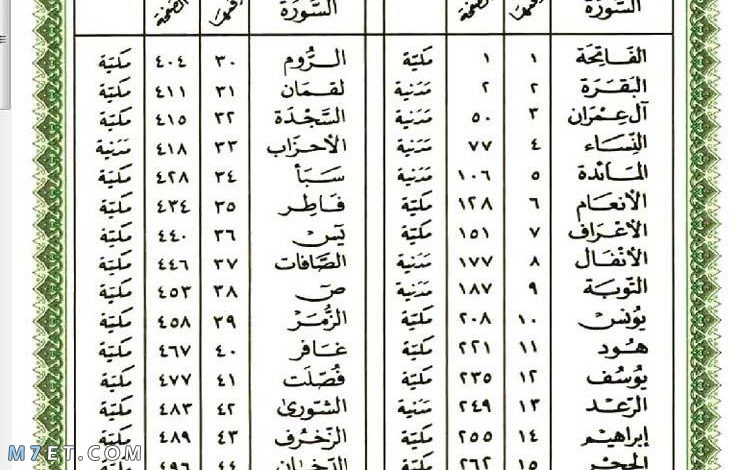 السُّورَة رقمها الصفحة
الفَاتِحَة ١ ١ مكيّة
البَقَرَة ٢ ٢ مَدَنية
آل عِمرَان ٣ ٥٠ مَدَنية
النِّسَاء ٤ ٧٧ مَدَنية
المَائدة ٥ ١٠٦ مَدَنية
الأنعَام ٦ ١٢٨ مكيّة
الأعرَاف ٧ ١٥١ مكيّة
الأنفَال ٨ ١٧٧ مَدَنية
التوبَة ٩ ١٨٧ مَدَنية
يُونس ١٠ ٢٠٨ مكيّة
هُود ١١ ٢٢١ مكيّة
يُوسُف ١٢ ٢٣٥ مكيّة
الرّعد ١٣ ٢٤٩ مَدَنية
إبراهيم ١٤ ٢٥٥ مكيّة
الحِجر ١٥ ٢٦٢ مكيّة
السُّورَة رقمها الصفحة
الرُّوم ٣٠ ٤٠٤ مكيّة
لقمَان ٣١ ٤١١ مكيّة
السَّجدَة ٣٢ ٤١٥ مكيّة
الأحزَاب ٣٣ ٤١٨ مَدَنية
سَبَأ ٣٤ ٤٢٨ مكيّة
فَاطِر ٣٥ ٤٣٤ مكيّة
يَس ٣٦ ٤٤٠ مكيّة
الصَّافات ٣٧ ٤٤٦ مكيّة
صَ ٣٨ ٤٥٣ مكيّة
الزُّمَر ٣٩ ٤٥٨ مكيّة
غَافر ٤٠ ٤٦٧ مكيّة
فُصّلَت ٤١ ٤٧٧ مكيّة
الشّورىٰ ٤٢ ٤٨٣ مكيّة
الزّخرُف ٤٣ ٤٨٩ مكيّة
الدّخَان ٤٤ ٤٩٦ مكيّة
M7ET.COM